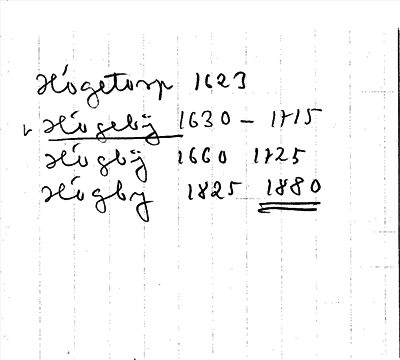 Högetorp 1623
Högebÿ 1630 - 1715
Högbÿ 1660 1725
Högby 1825 1880